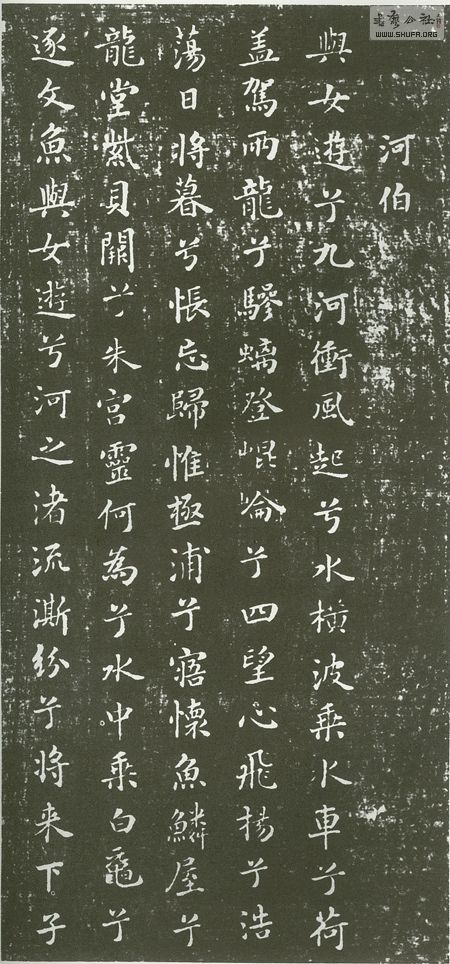 書藝公社
WWW.SHUFA.ORG
河伯
與女遊兮九河衝風起兮水橫波乘水車兮荷
盖駕兩龍兮驂螭登崐崘兮四望心飛揚兮浩
蕩日將暮兮悵忘歸惟極浦兮寤懷魚鱗屋兮
龍堂紫貝闕兮朱宮靈何為兮水中乘白黿兮
逐文魚與女遊兮河之渚流澌紛兮將来下子